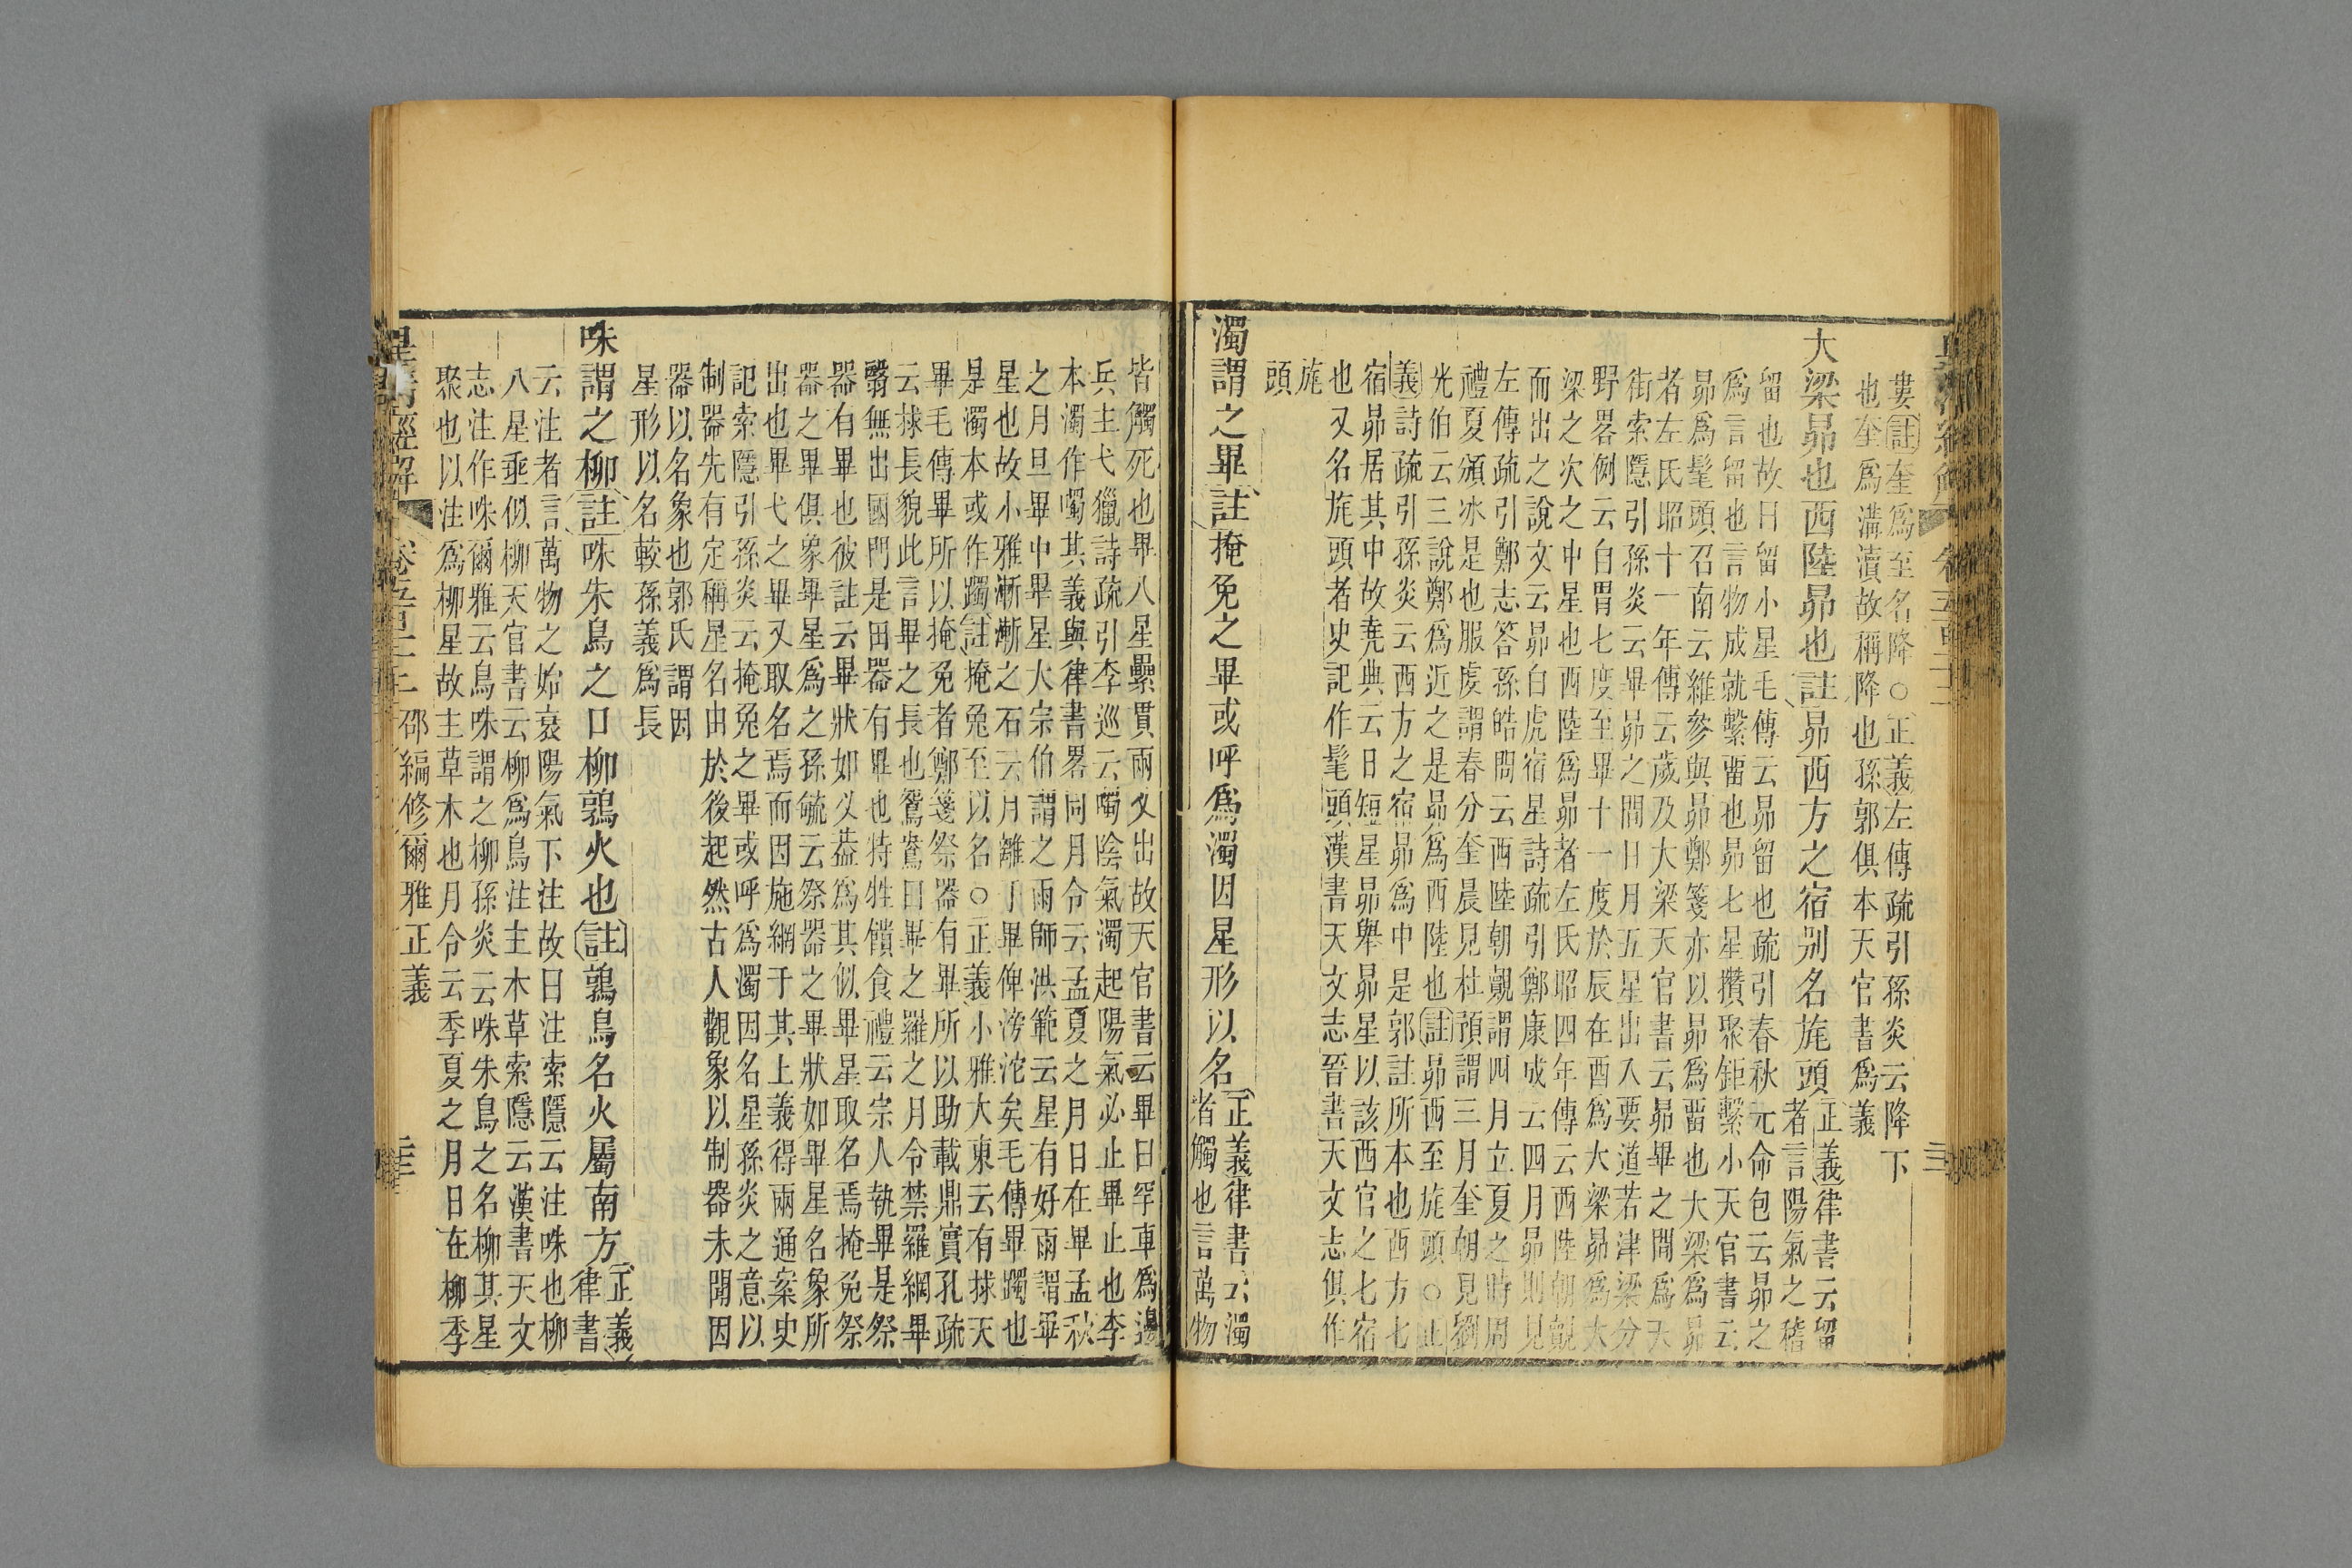 婁註奎爲至名降○正義左傳疏引孫炎云降下
也奎爲溝瀆故稱降也孫郭俱本天官書爲義
大梁昴也西陸昴也註昴西方之宿别名旄頭正義律書云留
者言陽氣之稽
留也故曰留小星毛傳云昴留也疏引春秋元命包云昴之
爲言留也言物成就繫畱也昴七星攢聚鉅繫小天官書云
昴爲髦頭召南云維參與昴鄭箋亦以昴爲畱也大梁爲昴
者左氏昭十一年傳云歲及大梁天官書云昴畢之間爲天
街索隱引孫炎云畢昴之間日月五星出入要道若津梁分
野畧例云自胃七度至畢十一度於辰在酉爲大梁昴爲大
梁之次之中星也西陸爲昴者左氏昭四年傳云西陸朝覿
而出之說文云昴白虎宿星詩疏引鄭康成云四月昴則見
左傳疏引鄭志答孫皓問云西陸朝覿謂四月立夏之時周
禮夏頒冰是也服虔謂春分奎晨見杜預謂三月奎朝見劉
光伯云三說鄭爲近之是昴爲西陸也註昴西至旄頭○正
義詩疏引孫炎云西方之宿昴爲中是郭註所本也西方七
宿昴居其中故堯典云日短星昴舉昴星以該西官之七宿
也又名旄頭者史記作髦頭漢書天文志晉書天文志俱作
旄
頭
濁謂之畢註掩兔之畢或呼爲濁因星形以名正義律書云濁
者觸也言萬物
皆觸死也畢八星纍貫兩叉出故天官書云畢曰罕車爲邊
兵主弋獵詩疏引李巡云噣陰氣濁起陽氣必止畢止也李
本濁作噣其義與律書畧同月令云孟夏之月日在畢孟秋
之月旦畢中畢星大宗伯謂之雨師洪範云星有好雨謂畢
星也故小雅漸漸之石云月離于畢俾滂沱矣毛傳畢躅也
是濁本或作躅註掩兔至以名○正義小雅大東云有捄天
畢毛傳畢所以掩兔者鄭箋祭器有畢所以助載鼎實孔疏
云捄長貌此言畢之長也鴛鴦曰畢之羅之月令禁羅網畢
翳無出國門是田器有畢也特牲饋食禮云宗人執畢是祭
器有畢也彼註云畢狀如义葢爲其似畢星取名焉掩兔祭
器之畢俱象畢星爲之孫毓云祭器之畢狀如畢星名象所
出也畢弋之畢又取名焉而因施網于其上義得兩通案史
記索隱引孫炎云掩兔之畢或呼爲濁因名星孫炎之意以
制器先有定稱星名由於後起然古人觀象以制器未聞因
器以名象也郭氏謂因
星形以名較孫義爲長
咮謂之柳註咮朱鳥之口柳鶉火也註鶉鳥名火屬南方正義
律書
云注者言萬物之始衰陽氣下注故曰注索隱云注咮也柳
八星垂似柳天官書云柳爲鳥注主木草索隱云漢書天文
志注作咮爾雅云鳥咮謂之柳孫炎云咮朱鳥之名柳其星
聚也以注爲柳星故主草木也月令云季夏之月日在柳季
邵編修爾雅正義